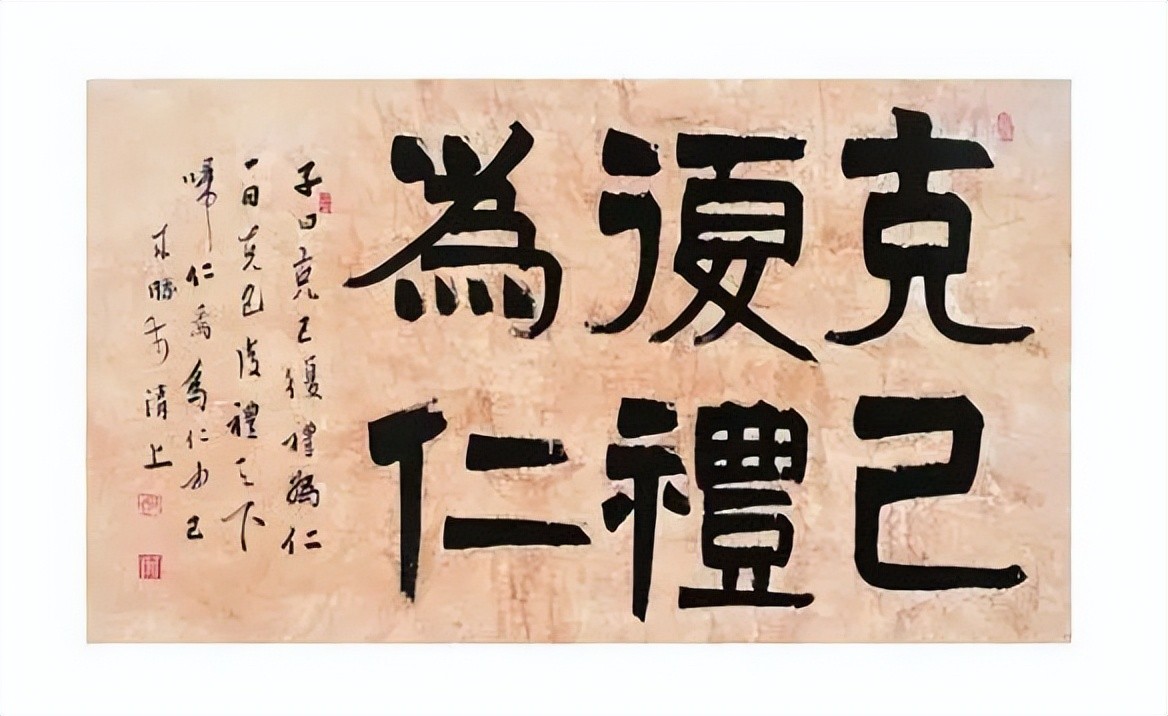 克己
復禮
為仁
子曰克己復禮為仁
一日克己復禮天下
歸仁焉為仁由己
清上